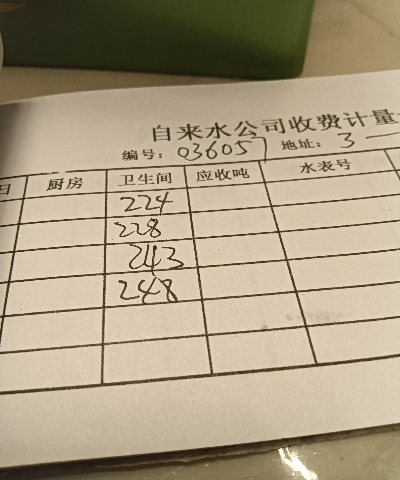 自来水公司收费计量
编号: 036057 地址: 3 —
日 厨房 卫生间 应收吨 水表号
224
228
243
248